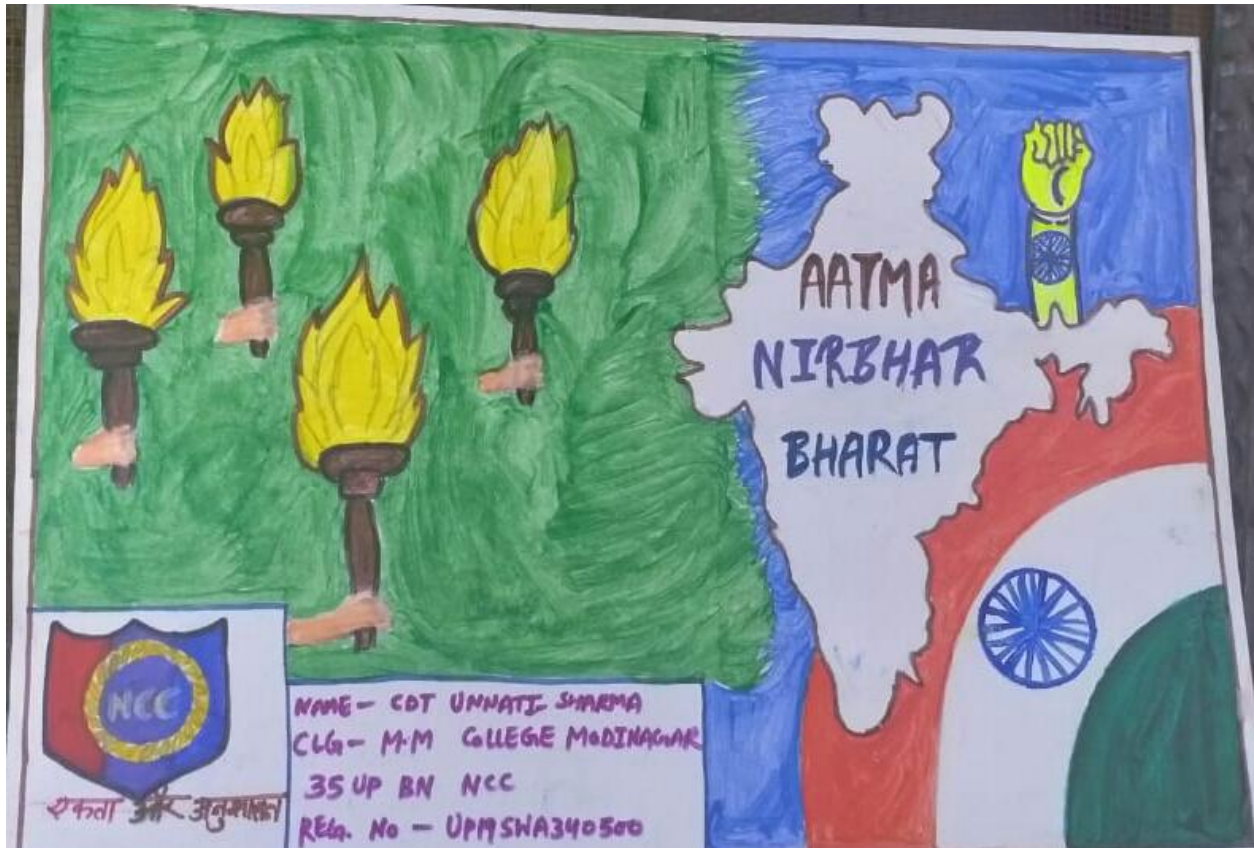 AATMA
NIRBHAR
BHARAT
NCC
एकता और अनुशासन
NAME - CDT UNNATI SHARMA
CLG - M.M COLLEGE MODINAGAR
35 UP BN NCC
REG. No - UPMSWA340500